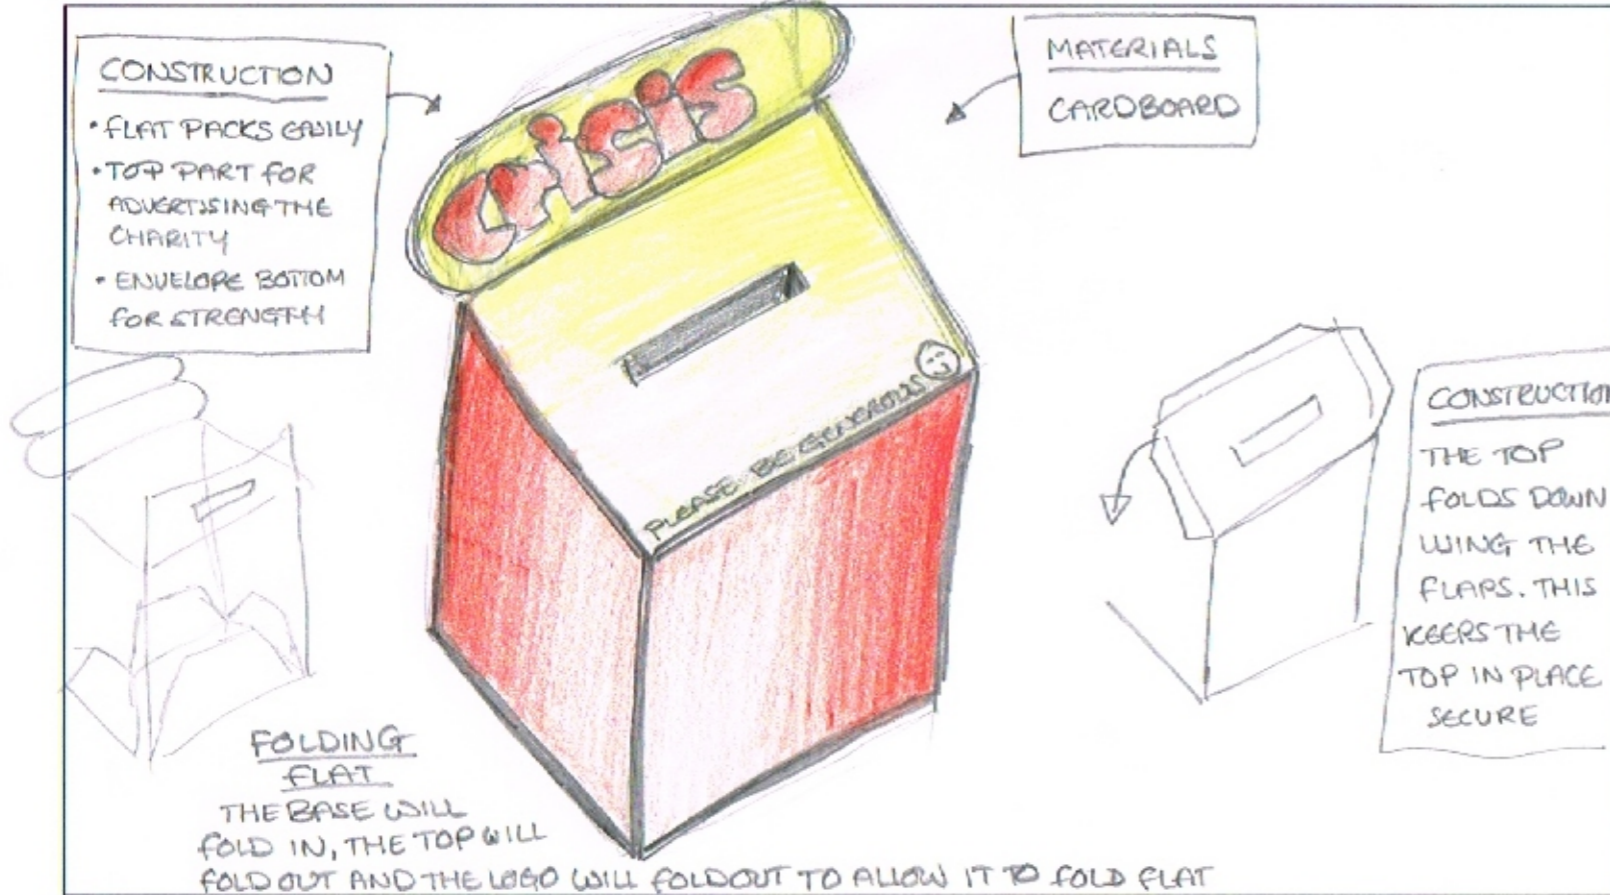 CONSTRUCTION
• FLAT PACKS EASILY
• TOP PART FOR
ADVERTISING THE
CHARITY
• ENVELOPE BOTTOM
FOR STRENGTH
CRISIS
PLEASE BE GENEROUS
MATERIALS
CARDBOARD
CONSTRUCTION
THE TOP
FOLDS DOWN
USING THE
FLAPS. THIS
KEEPS THE
TOP IN PLACE
SECURE
FOLDING
FLAT
THE BASE WILL
FOLD IN, THE TOP WILL
FOLD OUT AND THE LOGO WILL FOLD OUT TO ALLOW IT TO FOLD FLAT